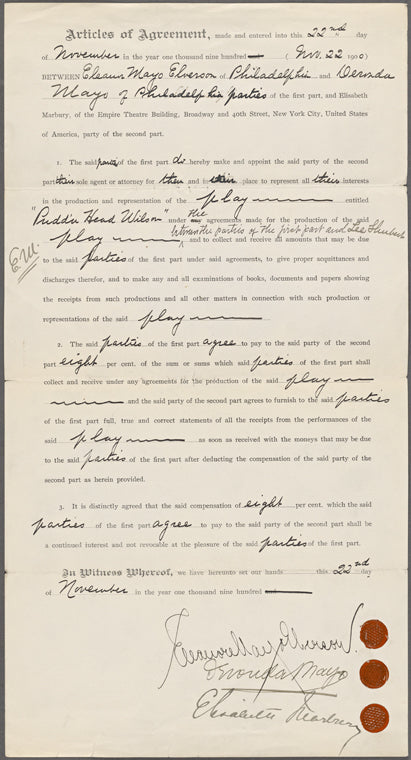 Articles of Agreement, made and entered into this 22nd day
of November in the year one thousand nine hundred (Nov. 22 1900)
BETWEEN Eleanor Mayo Elverson of Philadelphia and Deronda
Mayo of Philadelphia parties of the first part, and Elisabeth
Marbury, of the Empire Theatre Building, Broadway and 40th Street, New York City, United
States of America, party of the second part.
1. The said parties of the first part do hereby make and appoint the said party of the second
part their sole agent or attorney for them and in their place to represent all their interests
in the production and representation of the play entitled
"Pudd'n Head Wilson" under the agreements made for the production of the said
between the parties of the first part and Lee Shubert
play and to collect and receive all amounts that may be due
E.M.
to the said parties of the first part under said agreements, to give proper acquittances and
discharges therefor, and to make any and all examinations of books, documents and papers showing
the receipts from such productions and all other matters in connection with such production or
representations of the said play
2. The said parties of the first part agree to pay to the said party of the second
part eight per cent. of the sum or sums which said parties of the first part shall
collect and receive under any agreements for the production of the said play
and the said party of the second part agrees to furnish to the said parties
of the first part full, true and correct statements of all the receipts from the performances of the
said play as soon as received with the moneys that may be due
to the said parties of the first part after deducting the compensation of the said party of the
second part as herein provided.
3. It is distinctly agreed that the said compensation of eight per cent. which the said
parties of the first part agree to pay to the said party of the second part shall be
a continued interest and not revocable at the pleasure of the said parties of the first part.
In Witness Whereof, we have hereunto set our hands this 22nd day
of November in the year one thousand nine hundred
Eleanor Mayo Elverson.
Deronda Mayo
Elisabeth Marbury